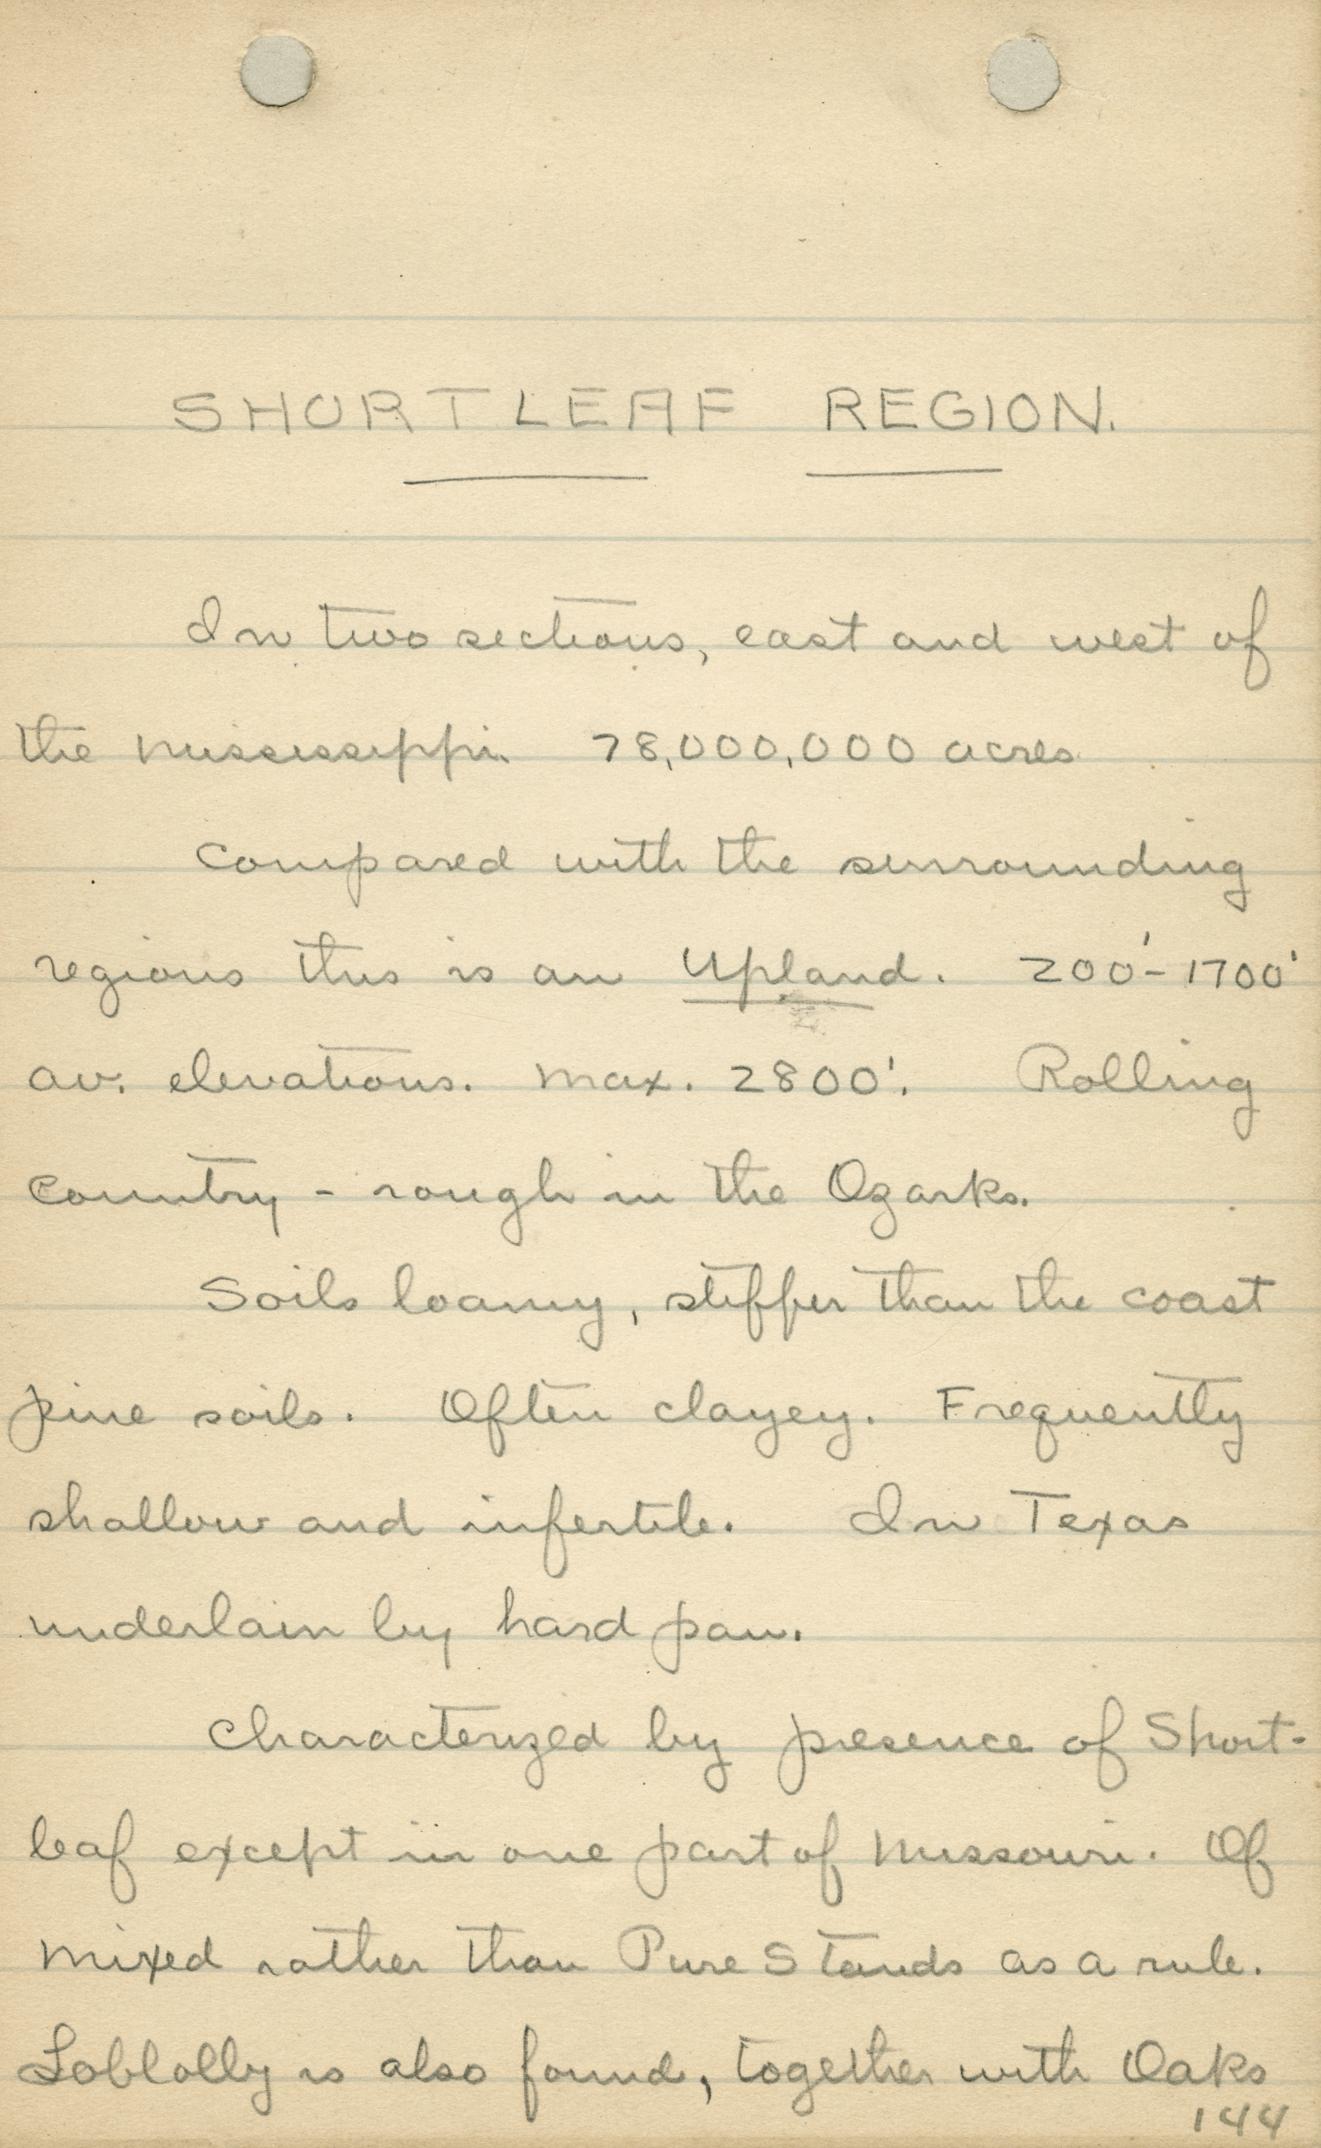 SHORTLEAF REGION.
In two sections, east and west of
the Mississippi. 78,000,000 acres
Compared with the surrounding
regions this is an Upland. 200'-1700'
av. elevations. Max. 2800'. Rolling
country - rough in the Ozarks.
Soils loamy, stiffer than the coast
pine soils. Often clayey. Frequently
shallow and infertile. In Texas
underlain by hard pan.
Characterized by presence of Short-
leaf except in one part of Missouri. Of
mixed rather than Pure Stands as a rule.
Loblolly is also found, together with Oaks
144